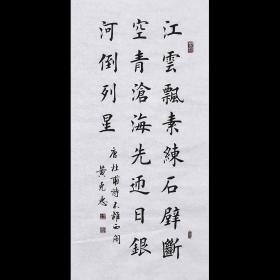 江雲飄素練石壁斷
空青滄海先迎日銀
河倒列星
唐杜甫詩不離西閣